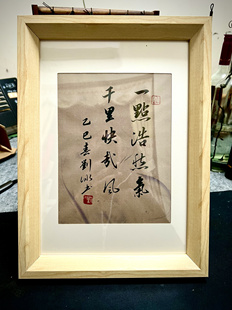 一點浩然氣
千里快哉風
乙巳春劉冰书